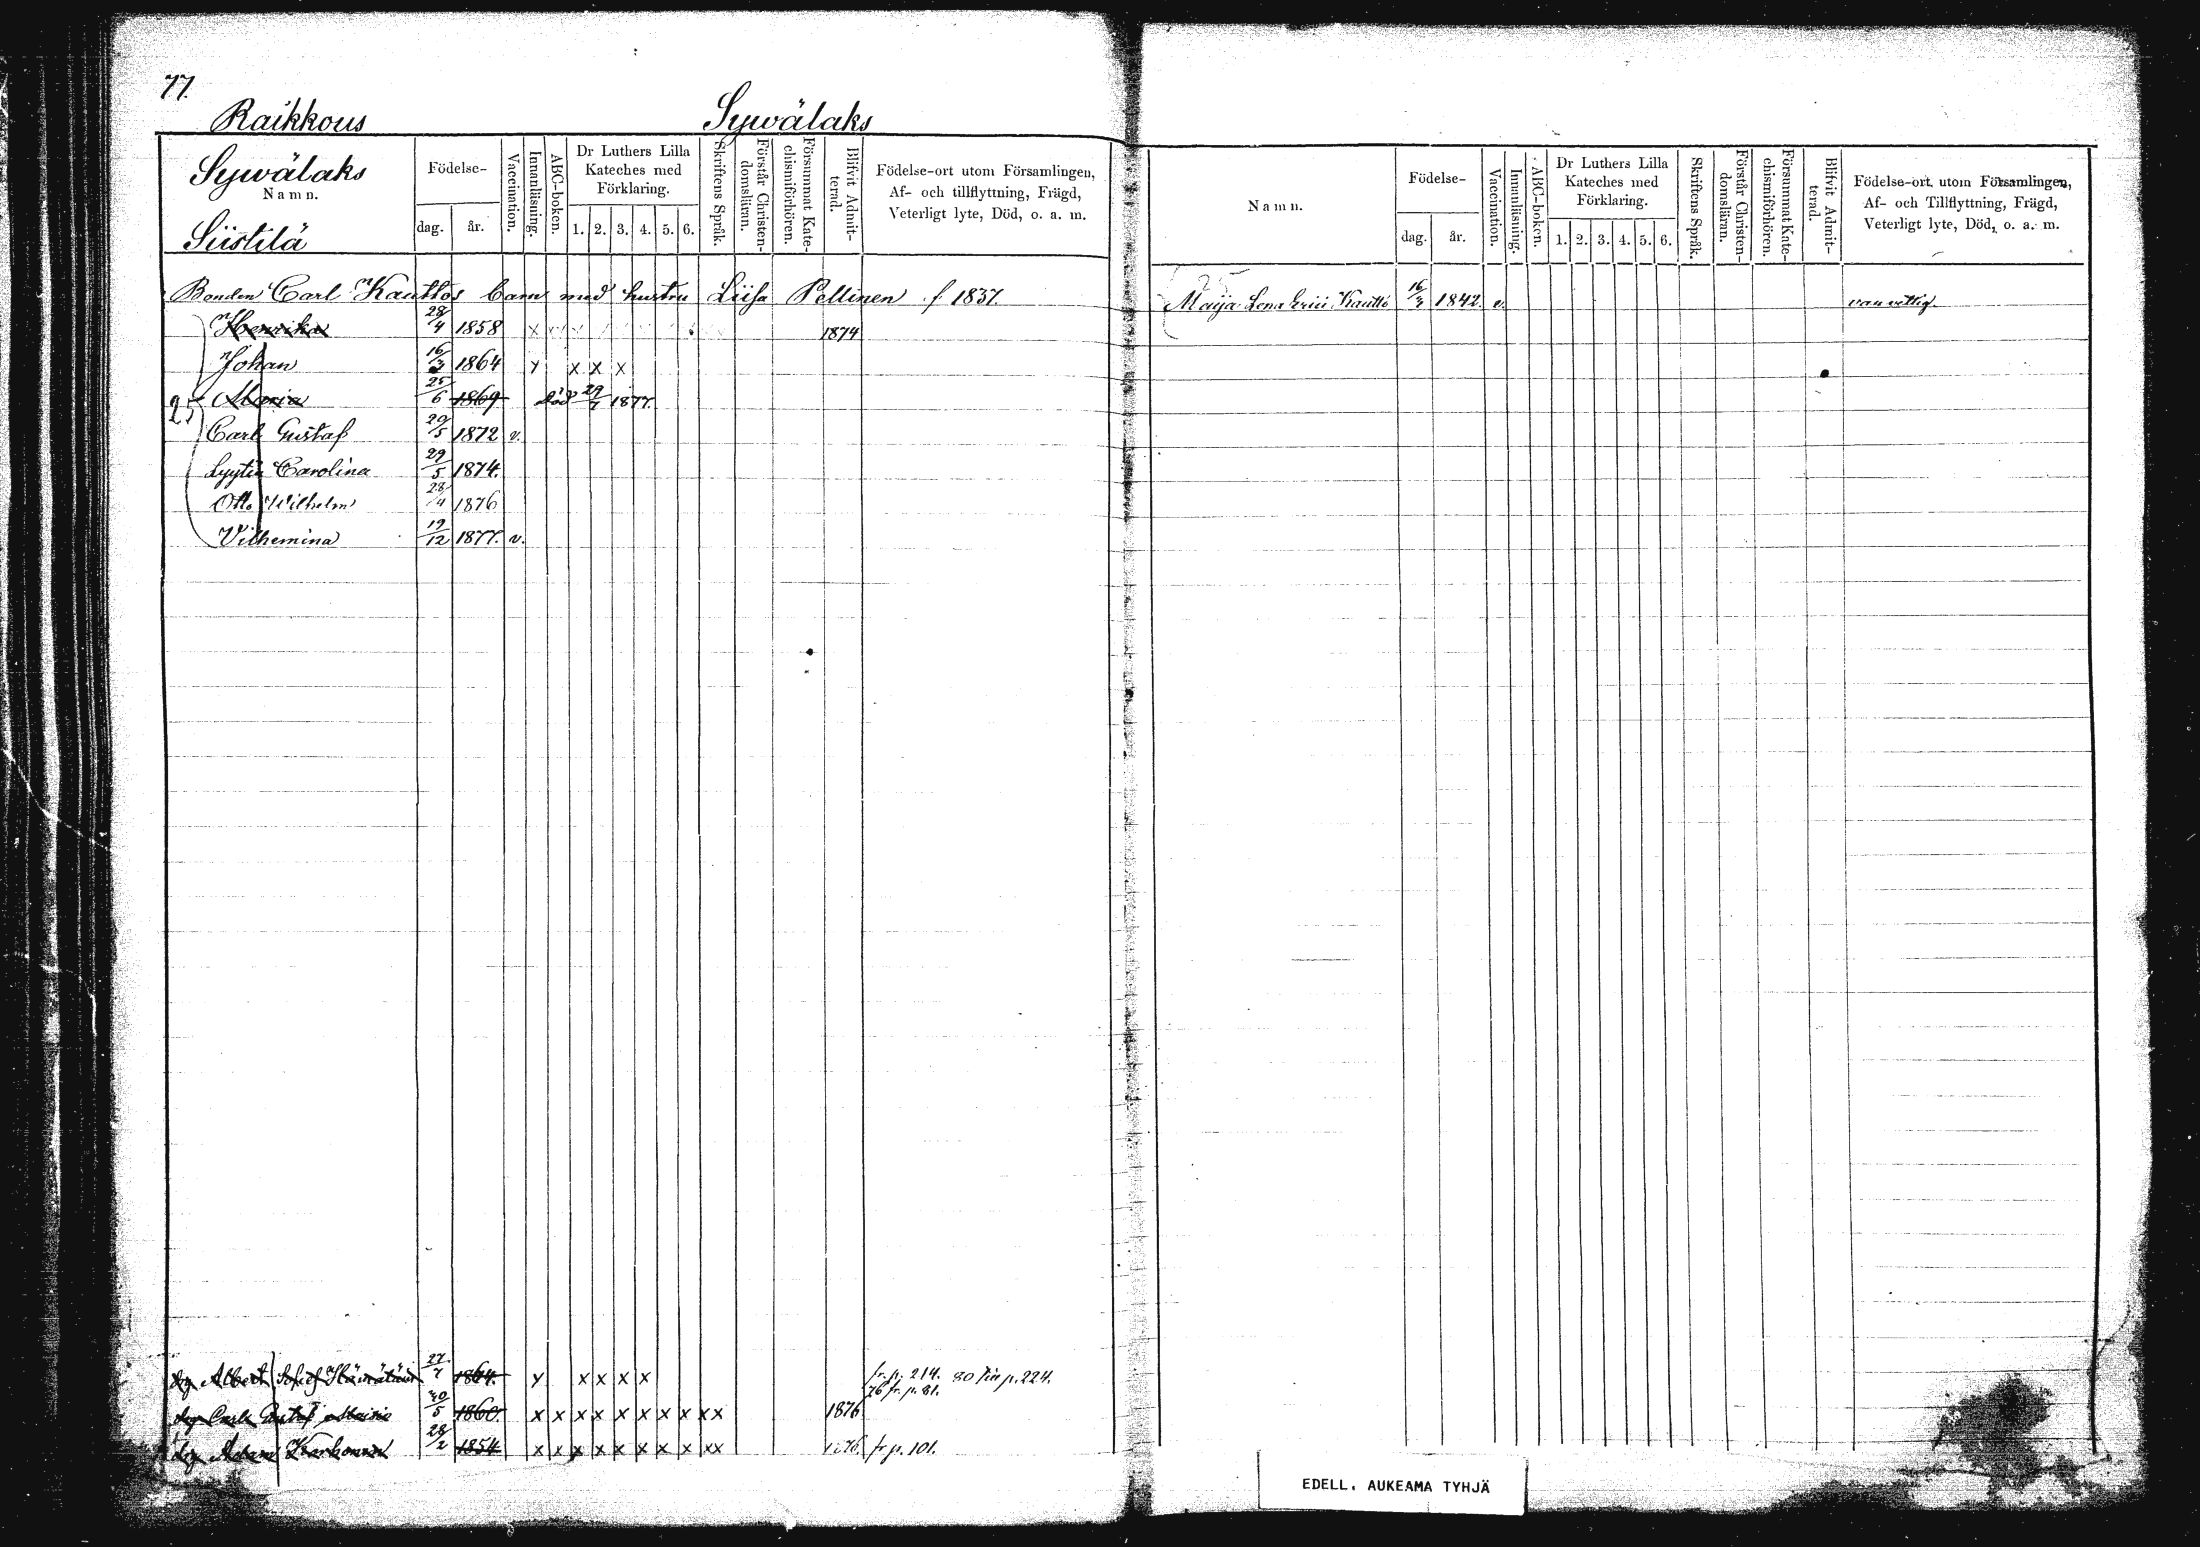 77.
Raikkous Sywälaks
Sywälaks
Namn.
Siistilä
Födelse-
dag. år.
Vaccination.
Innanläsning.
ABC-boken.
Dr Luthers Lilla
Kateches med
Förklaring.
1. 2. 3. 4. 5. 6.
Skriftens Språk.
Förstår Christen-
domsläran.
Försummat Kate-
chismiförhören.
Blifvit Admit-
terad.
Födelse-ort utom Församlingen,
Af- och tillflyttning, Frägd,
Veterligt lyte, Död, o. a. m.
Bonden Carl Kauttos barn med hustru Liisa Pellinen f 1837.
Henrika 28/4 1858 x 1874
Johan 16/3 1864 x x x x
25 Maria 25/6 1869 död 29/7 1877.
Carl Gustaf 20/5 1872 v.
Lyytia Carolina 29/5 1874.
Otto Wilhelm 28/4 1876
Vilhemina 19/12 1877. v.
dg Albert Josef 27/7 1864. x x x x x fr. p. 214. 80 fin p. 224.
76 fr. p. 81.
dg Carl Gustaf 30/5 1860. x x x x x x x x x x 1876
dg Adam Karhonen 28/2 1854 x x x x x x x x x x 1876 fr p. 101.
Namn.
Födelse-
dag. år.
Vaccination.
Innanläsning.
ABC-boken.
Dr Luthers Lilla
Kateches med
Förklaring.
1. 2. 3. 4. 5. 6.
Skriftens Språk.
Förstår Christen-
domsläran.
Försummat Kate-
chismiförhören.
Blifvit Admit-
terad.
Födelse-ort utom Församlingen,
Af- och Tillflyttning, Frägd,
Veterligt lyte, Död, o. a. m.
25
Maija Lena Erici Kautto 16/3 1842. v. vanvettig.
EDELL. AUKEAMA TYHJÄ